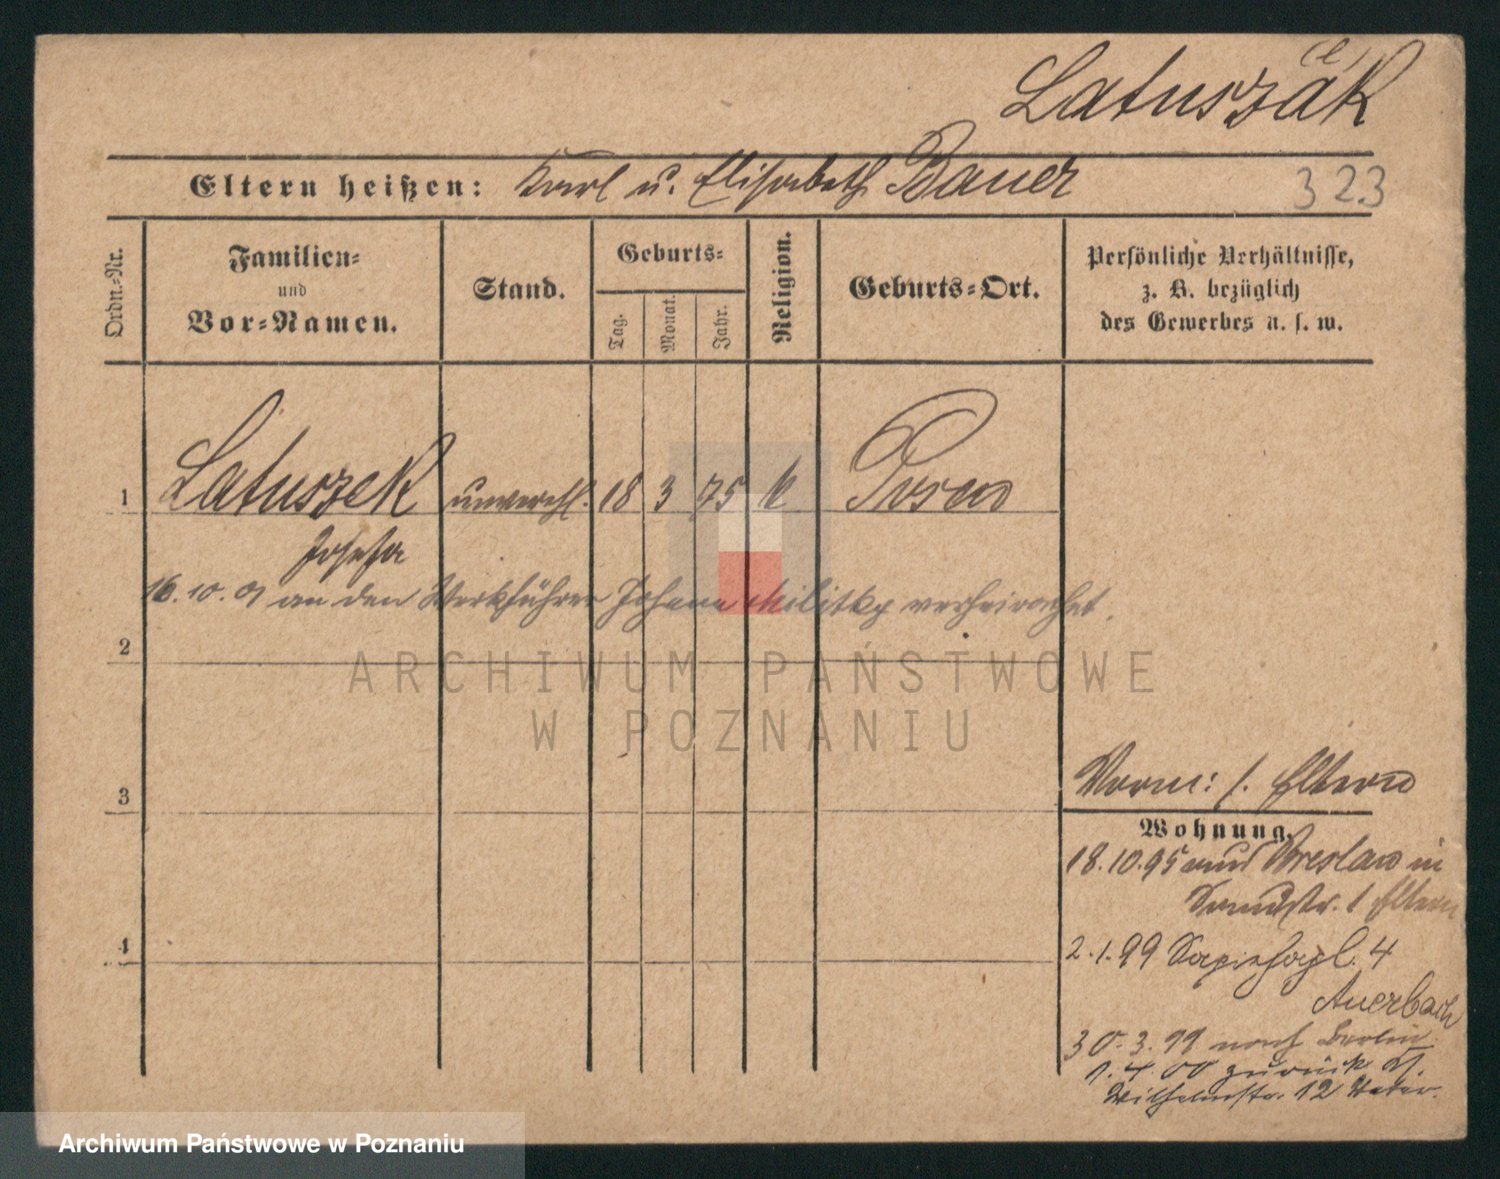 (e)
Latuszak
Eltern heißen: Karl u. Elisabeth Bauer
323
Ordn.-Nr.
Familien-
und
Vor-Namen.
Stand.
Geburts-
Tag.
Monat.
Jahr.
Religion.
Geburts-Ort.
Persönliche Verhältnisse,
z. B. bezüglich
des Gewerbes u. s. w.
1 Latuszek unverehl. 18 3 75 k Posen
Josefa
16.10.01 an den Werkführer Johann Militky verheirathet.
2
3
4
ARCHIWUM PAŃSTWOWE
W POZNANIU
Vorm: s. Eltern
Wohnung.
18.10.95 aus Breslau in
Sandstr. 1 Eltern
2.1.99 Sapiehapl. 4
Auerbach
30.3.99 nach Berlin
1.4.00 zurück
Wilhelmstr. 12 Vater.
Archiwum Państwowe w Poznaniu